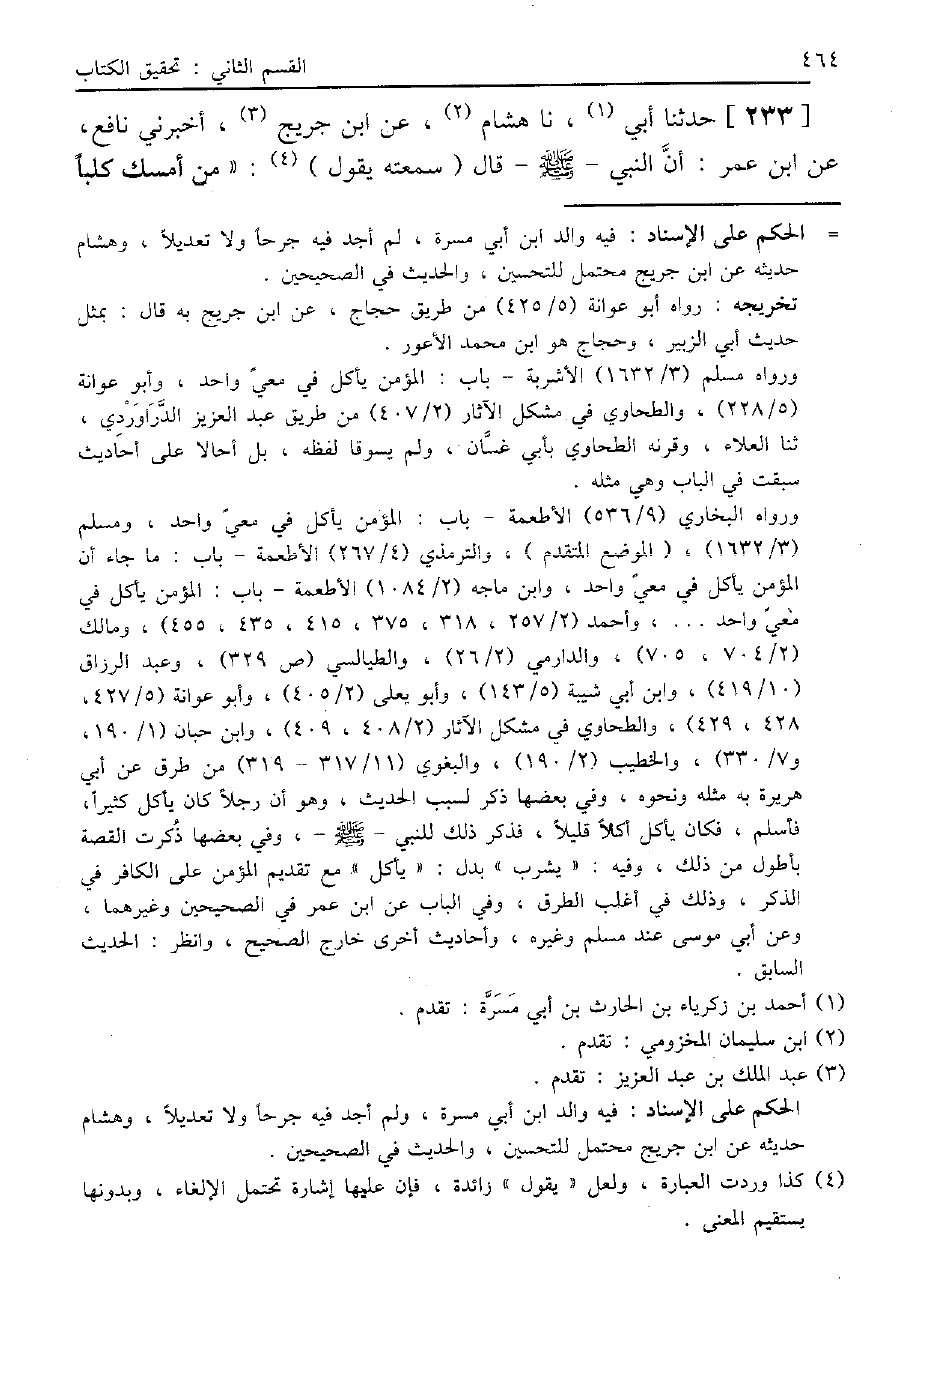 ٤٦٤
القسم الثاني : تحقيق الكتاب
[ ٢٣٣ ] حدثنا أبي (١) ، نا هشام (٢) ، عن ابن جريج (٣) ، أخبرني نافع،
عن ابن عمر : أنَّ النبي – ﷺ – قال ( سمعته يقول ) (٤) : « من أمسك كلباً
= الحكم على الإسناد : فيه والد ابن أبي مسرة ، لم أجد فيه جرحاً ولا تعديلاً ، وهشام
حديثه عن ابن جريج محتمل للتحسين ، والحديث في الصحيحين .
تخريجه : رواه أبو عوانة (٤٢٥/٥) من طريق حجاج ، عن ابن جريج به قال : بمثل
حديث أبي الزبير ، وحجاج هو ابن محمد الأعور .
ورواه مسلم (١٦٣٢/٣) الأشربة – باب : المؤمن يأكل في معيً واحد ، وأبو عوانة
(٢٢٨/٥) ، والطحاوي في مشكل الآثار (٤٠٧/٢) من طريق عبد العزيز الدَّرَاوَرْدي ،
ثنا العلاء ، وقرنه الطحاوي بأبي غسَّان ، ولم يسوقا لفظه ، بل أحالا على أحاديث
سبقت في الباب وهي مثله .
ورواه البخاري (٥٣٦/٩) الأطعمة – باب : المؤمن يأكل في معيً واحد ، ومسلم
(١٦٣٢/٣) ، ( الموضع المتقدم ) ، والترمذي (٢٦٧/٤) الأطعمة – باب : ما جاء أن
المؤمن يأكل في معيً واحد ، وابن ماجه (١٠٨٤/٢) الأطعمة – باب : المؤمن يأكل في
معيً واحد ... ، وأحمد (٢٥٧/٢ ، ٣١٨ ، ٣٧٥ ، ٤١٥ ، ٤٣٥ ، ٤٥٥) ، ومالك
(٧٠٤/٢ ، ٧٠٥) ، والدارمي (٢٦/٢) ، والطيالسي (ص ٣٢٩) ، وعبد الرزاق
(٤١٩/١٠) ، وابن أبي شيبة (١٤٣/٥) ، وأبو يعلى (٤٠٥/٢) ، وأبو عوانة (٤٢٧/٥،
٤٢٨ ، ٤٢٩) ، والطحاوي في مشكل الآثار (٤٠٨/٢ ، ٤٠٩) ، وابن حبان (١٩٠/١ ،
و٣٣٠/٧) ، والخطيب (١٩٠/٢) ، والبغوي (٣١٧/١١ – ٣١٩) من طرق عن أبي
هريرة به مثله ونحوه ، وفي بعضها ذكر لسبب الحديث ، وهو أن رجلاً كان يأكل كثيراً،
فأسلم ، فكان يأكل أكلاً قليلاً ، فذكر ذلك للنبي – ﷺ – ، وفي بعضها ذُكرت القصة
بأطول من ذلك ، وفيه : « يشرب » بدل : « يأكل » مع تقديم المؤمن على الكافر في
الذكر ، وذلك في أغلب الطرق ، وفي الباب عن ابن عمر في الصحيحين وغيرهما ،
وعن أبي موسى عند مسلم وغيره ، وأحاديث أخرى خارج الصحيح ، وانظر : الحديث
السابق .
(١) أحمد بن زكرياء بن الحارث بن أبي مَسَرَّة : تقدم .
(٢) ابن سليمان المخزومي : تقدم .
(٣) عبد الملك بن عبد العزيز : تقدم .
الحكم على الإسناد : فيه والد ابن أبي مسرة ، ولم أجد فيه جرحاً ولا تعديلاً ، وهشام
حديثه عن ابن جريج محتمل للتحسين ، والحديث في الصحيحين .
(٤) كذا وردت العبارة ، ولعل « يقول » زائدة ، فإن عليها إشارة تحتمل الإلغاء ، وبدونها
يستقيم المعنى .